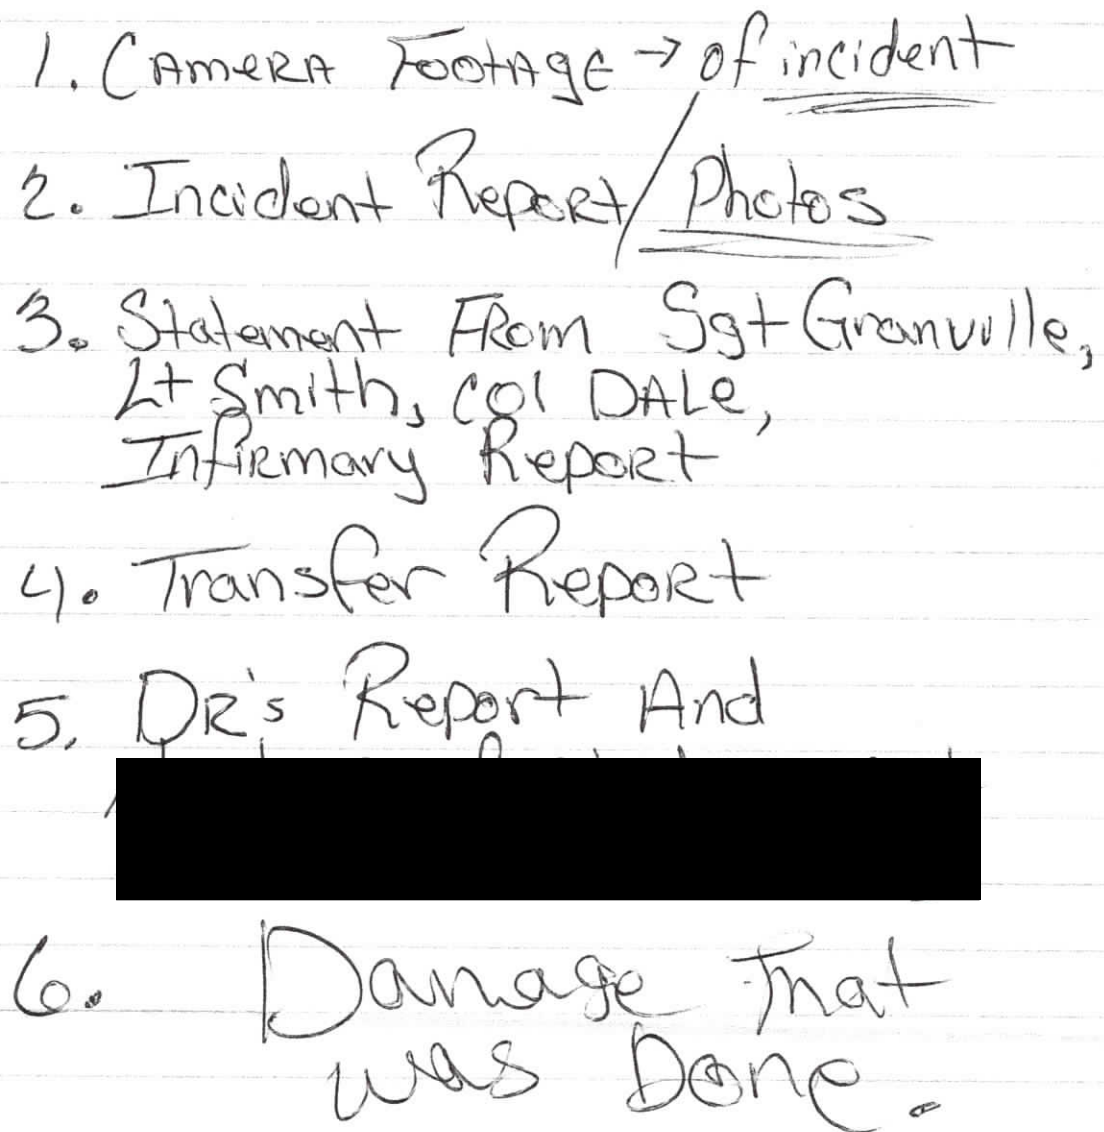 1. CAMERA FootAgE → of incident
2. Incident Report/Photos
3. Statement From Sgt Granville,
Lt Smith, Col DALe,
Infirmary Report
4. Transfer Report
5. DR's Report And
6. Damage That
was Done.